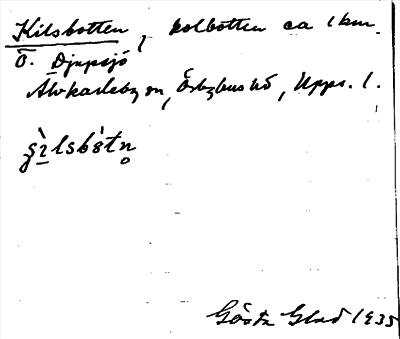 Kilsbotten, kolbotten ca 1 km.
Ö. Djupsjö
Älvkarleby sn, Örbyhus hd, Upps. l.
ʂìlsbòtn̥
Gösta Glad 1935